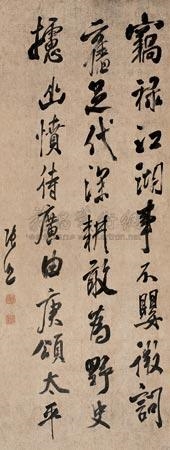 竊祿江湖事不嬰微詞
足代深耕敢為野史
攄幽憤待廣由庚頌太平